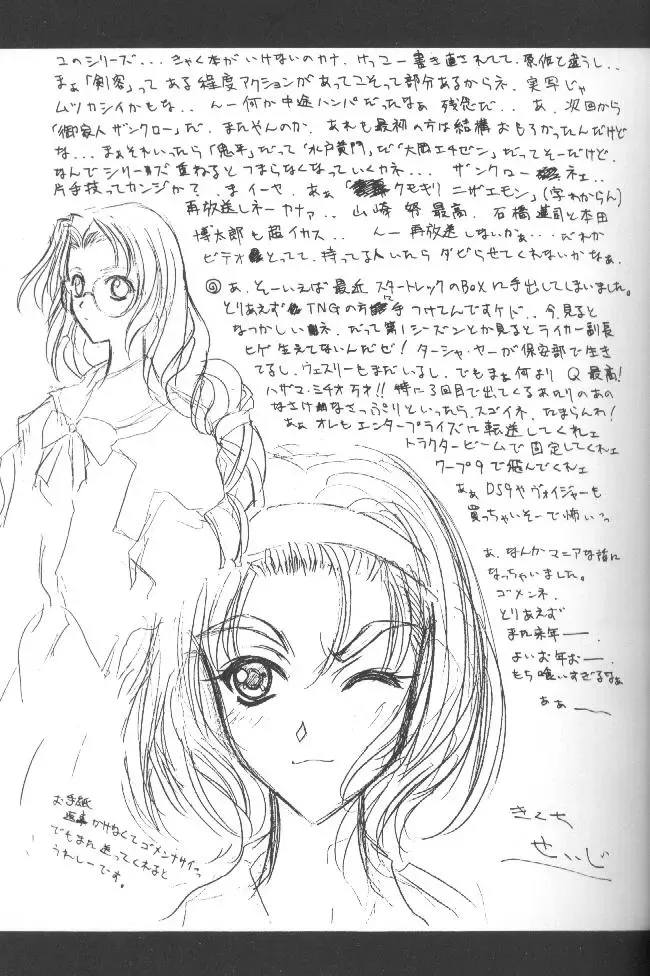 このシリーズ...きゃく本がいけないのカナ、けっこー書き直されてて、原作と違うし..
まぁ「剣客」って ある程度アクションがあってこそって部分あるからネ、実写じゃ
ムツカシイかもな.. んー何か中途ハンパだったなぁ 残念だ.. あ、次回から
「御家人ザンクロー」だ、またやんのか、あれも最初の方は結構おもろかったんだけど
な... まぁそれいったら「鬼平」だって「水戸黄門」だ「大岡エチゼン」だってそーだけど、
なんでシリーズ重ねると つまらなくなっていくカネ... ザンクロー ネェ..
片手技ってカンジか?、ま イーヤ、あぁ「クモギリ ニザエモン」(字わからん)
再放送しネーカナァ.. 山崎努最高、石橋蓮司と本田
博太郎も超イカス.. んー再放送しないかぁ... だれか
ビデオとってて、持ってる人いたら ダビらせてくれないかなぁ、
◎ あ、そーいえば 最近 スタートレックのBOXに手出してしまいました。
とりあえず TNGの方に手つけてんですケド.. 今見ると
なつかしいネ、だって第1シーズンとか見るとライカー副長
ヒゲ生えてないんだぜ!ターシャ・ヤーが保安部で生き
てるし、ウェスリーもまだいるし、でもまぁ何より Q最高!
ハザマ・ミチオ万才!!特に3回目で出てくるあたりのあの
なさけなさっぷりといったら、スゴイネ、たまらんわ!
あぁ オレもエンタープライズに転送してくれェ
トラクタービームで固定してくれェ
ワープ9で飛んでくれェ
あぁ DS9やヴォイジャーも
買っちゃいそーで怖いっ
あ、なんかマニアな話に
なっちゃいました。
ゴメンネ、
とりあえず
また来年ー、
よいお年おー、
もち喰いすぎるなぁ
あぁー
お手紙
返事かけなくてゴメンナサイっ
でもまた送ってくれると
うれしーです。
きくち
せいじ